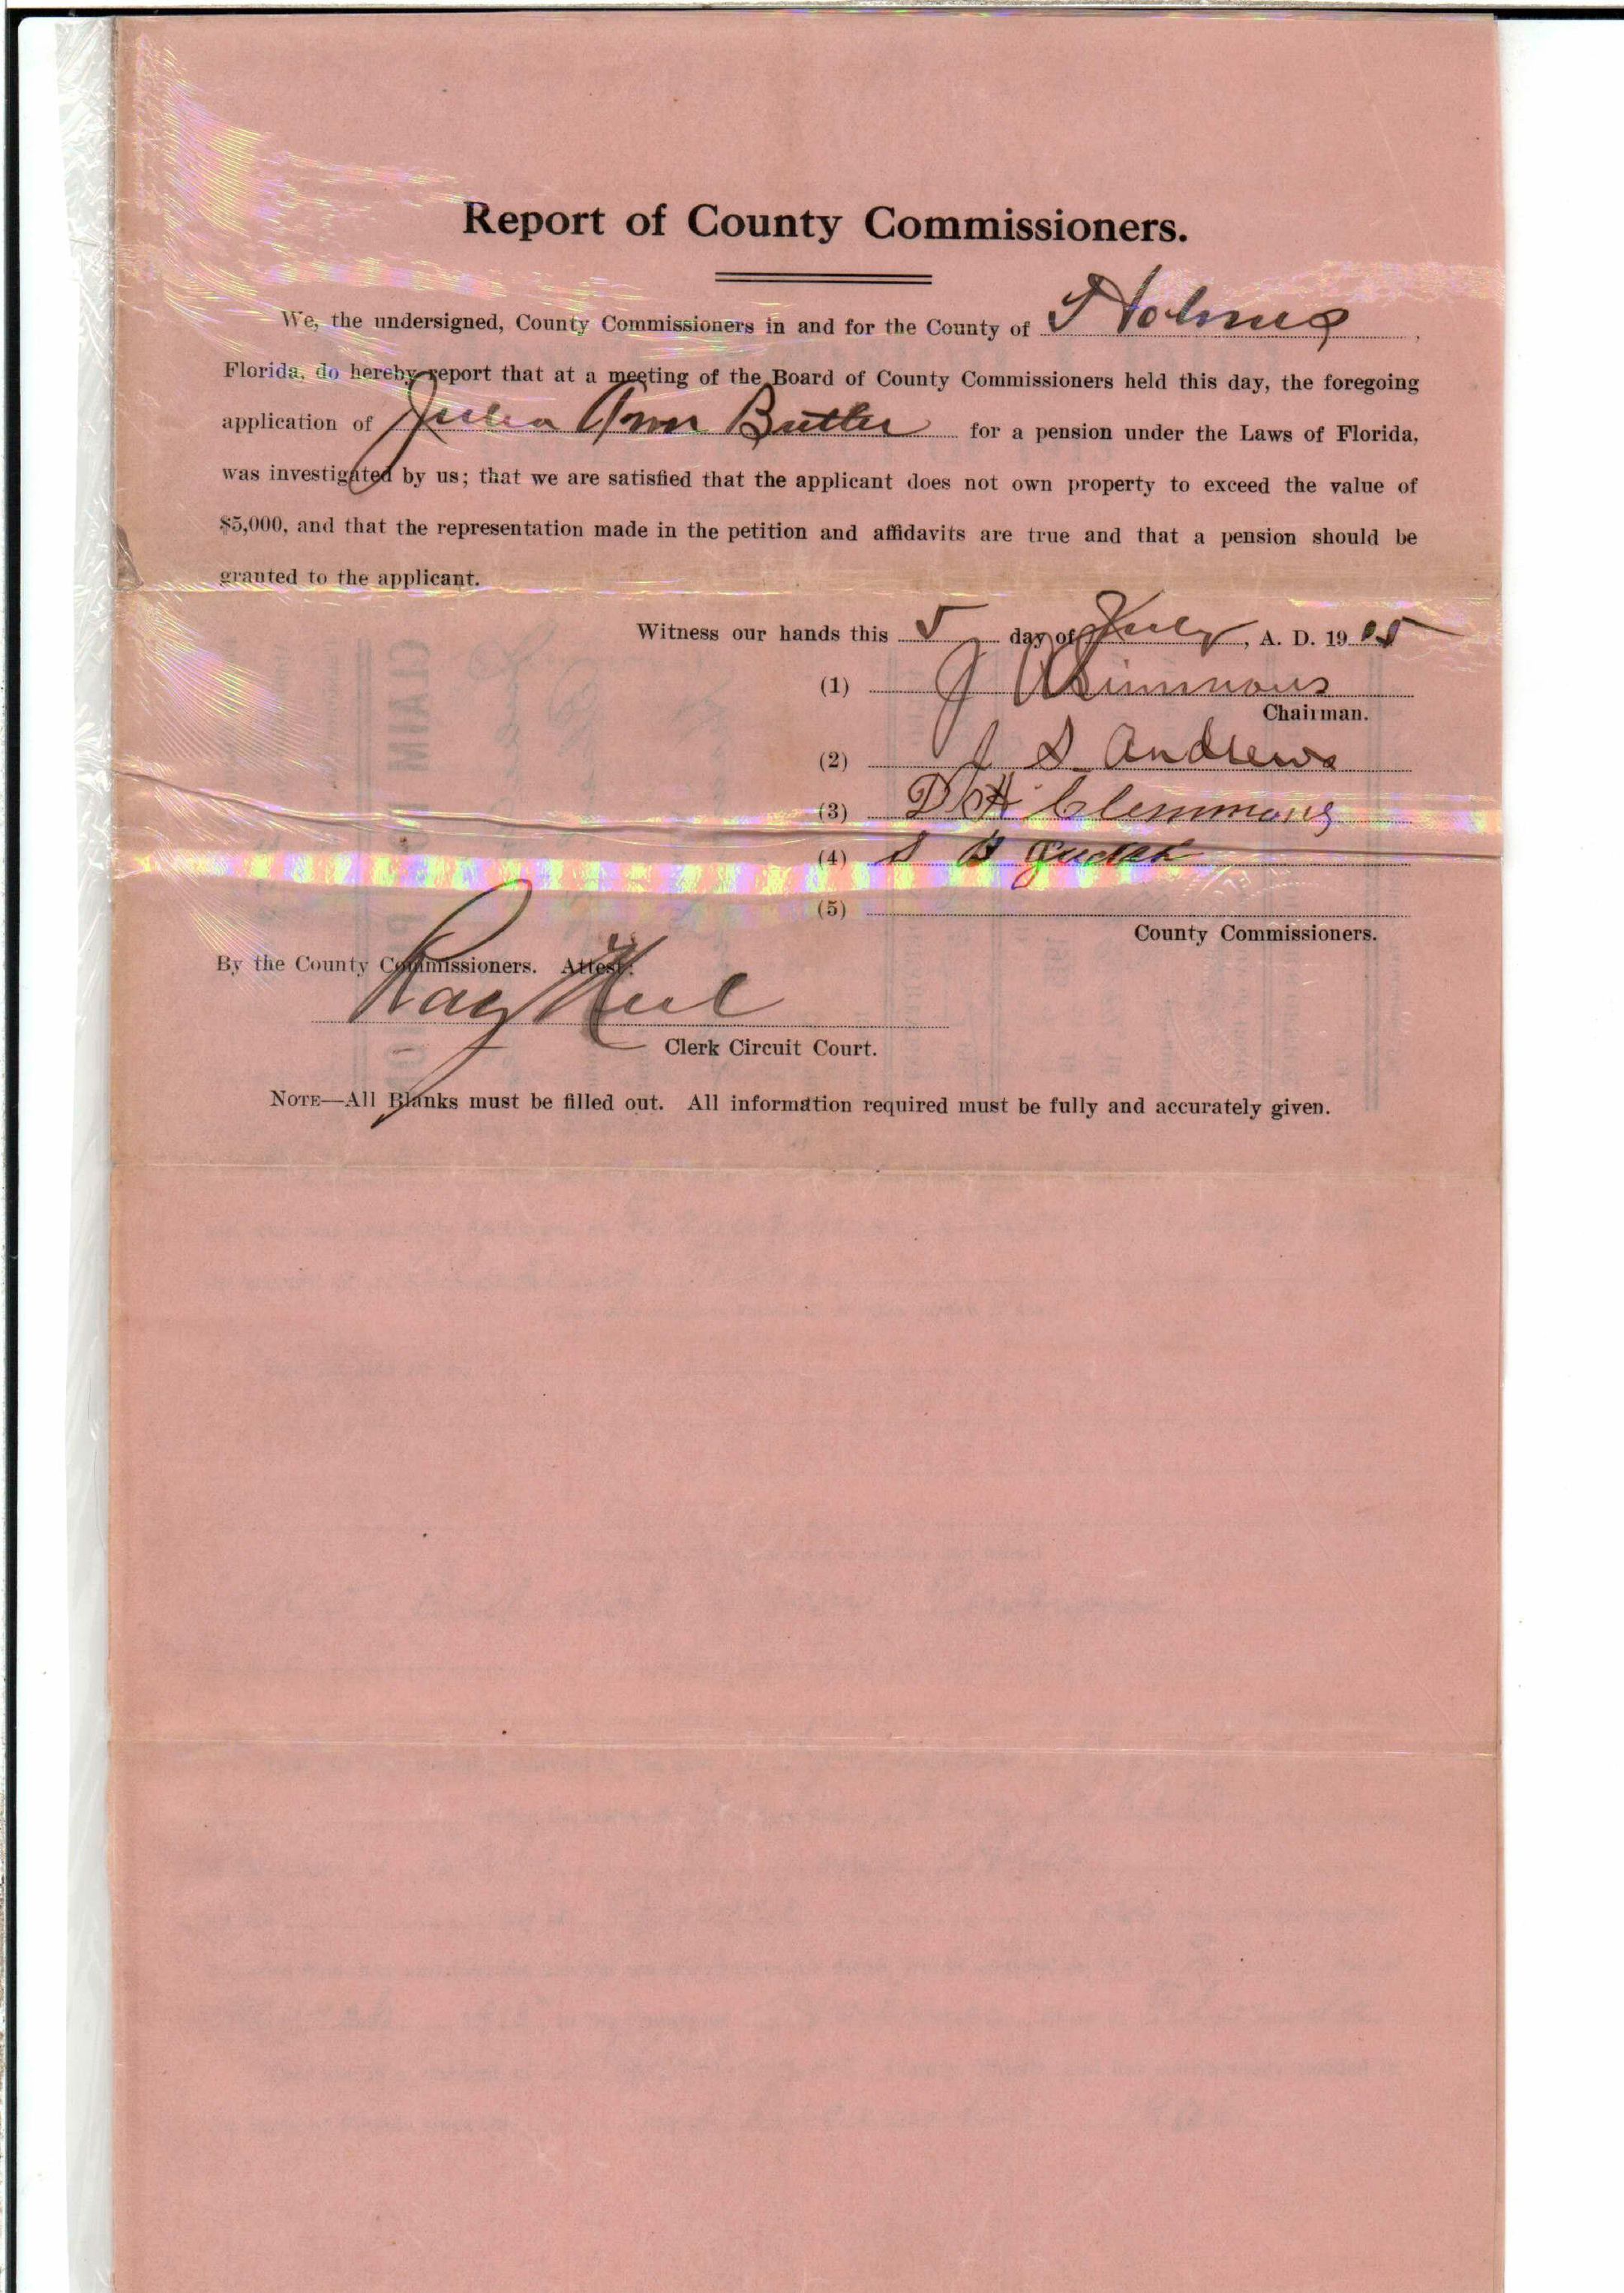 Report of County Commissioners.
We, the undersigned, County Commissioners in and for the County of Holmes,
Florida, do hereby report that at a meeting of the Board of County Commissioners held this day, the foregoing
application of Julia Ann Butler for a pension under the Laws of Florida,
was investigated by us; that we are satisfied that the applicant does not own property to exceed the value of
$5,000, and that the representation made in the petition and affidavits are true and that a pension should be
granted to the applicant.
Witness our hands this 5 day of July, A. D. 19
(1) J Simmons
Chairman.
(2) J S Andrews
(3) D H Clemmons
(4) S B
(5)
County Commissioners.
By the County Commissioners. Attest:
Ray
Clerk Circuit Court.
NOTE—All Blanks must be filled out. All information required must be fully and accurately given.